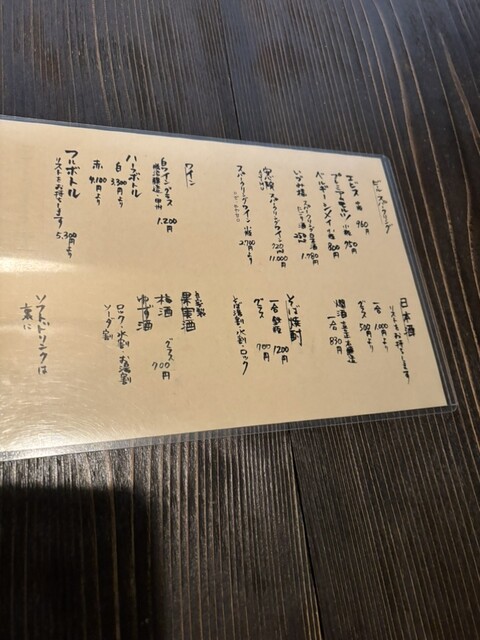 ビール、スパークリング
ヱビス 中瓶 960円
プレミアムモルツ 小瓶 750円
ベルギーシメイ 小瓶 800円
スパークリング日本酒
250ml 1,780円
スパークリングワイン 720ml
11,000円
スパークリングワイン 小瓶
2,700円より
ワイン
白ワイングラス
1,200円
ハーフボトル
白 3,300円より
赤 4,100円より
フルボトル
リストをお持ちします
5,300円より
日本酒
リストをお持ちします
一合 1,000円より
グラス 500円より
燗酒
一合 830円
そば焼酎
一合 1200円
グラス 700円
そば湯割・水割・ロック
自家製
果実酒
梅酒 グラス
ゆず酒 700円
ロック・水割・お湯割
ソーダ割
ソフトドリンクは
裏に